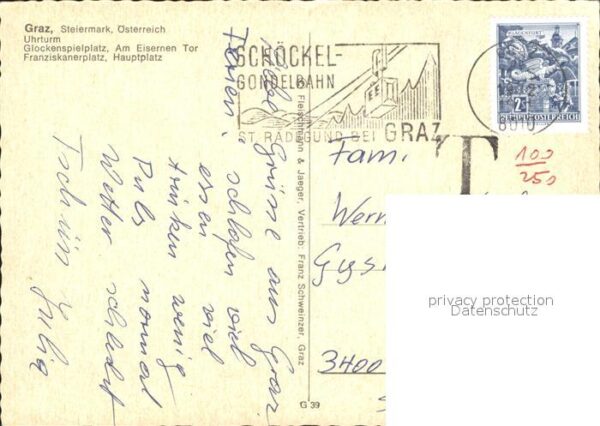 Graz, Steiermark, Österreich
Uhrturm
Glockenspielplatz, Am Eisernen Tor
Franziskanerplatz, Hauptplatz
SCHÖCKEL-
GONDELBAHN
ST. RADEGUND BEI GRAZ
KLAGENFURT
2S
REPUBLIK ÖSTERREICH
8010
T
100
250
Grüsse aus Graz
Ferien: schlafen viel
essen viel
trinken wenig
Puls normal
Wetter schlecht
Tschüss Julia
Fleischmann & Jaeger, Vertrieb: Franz Schweinzer, Graz
G 39
Fam.
Wern
3400
privacy protection
Datenschutz